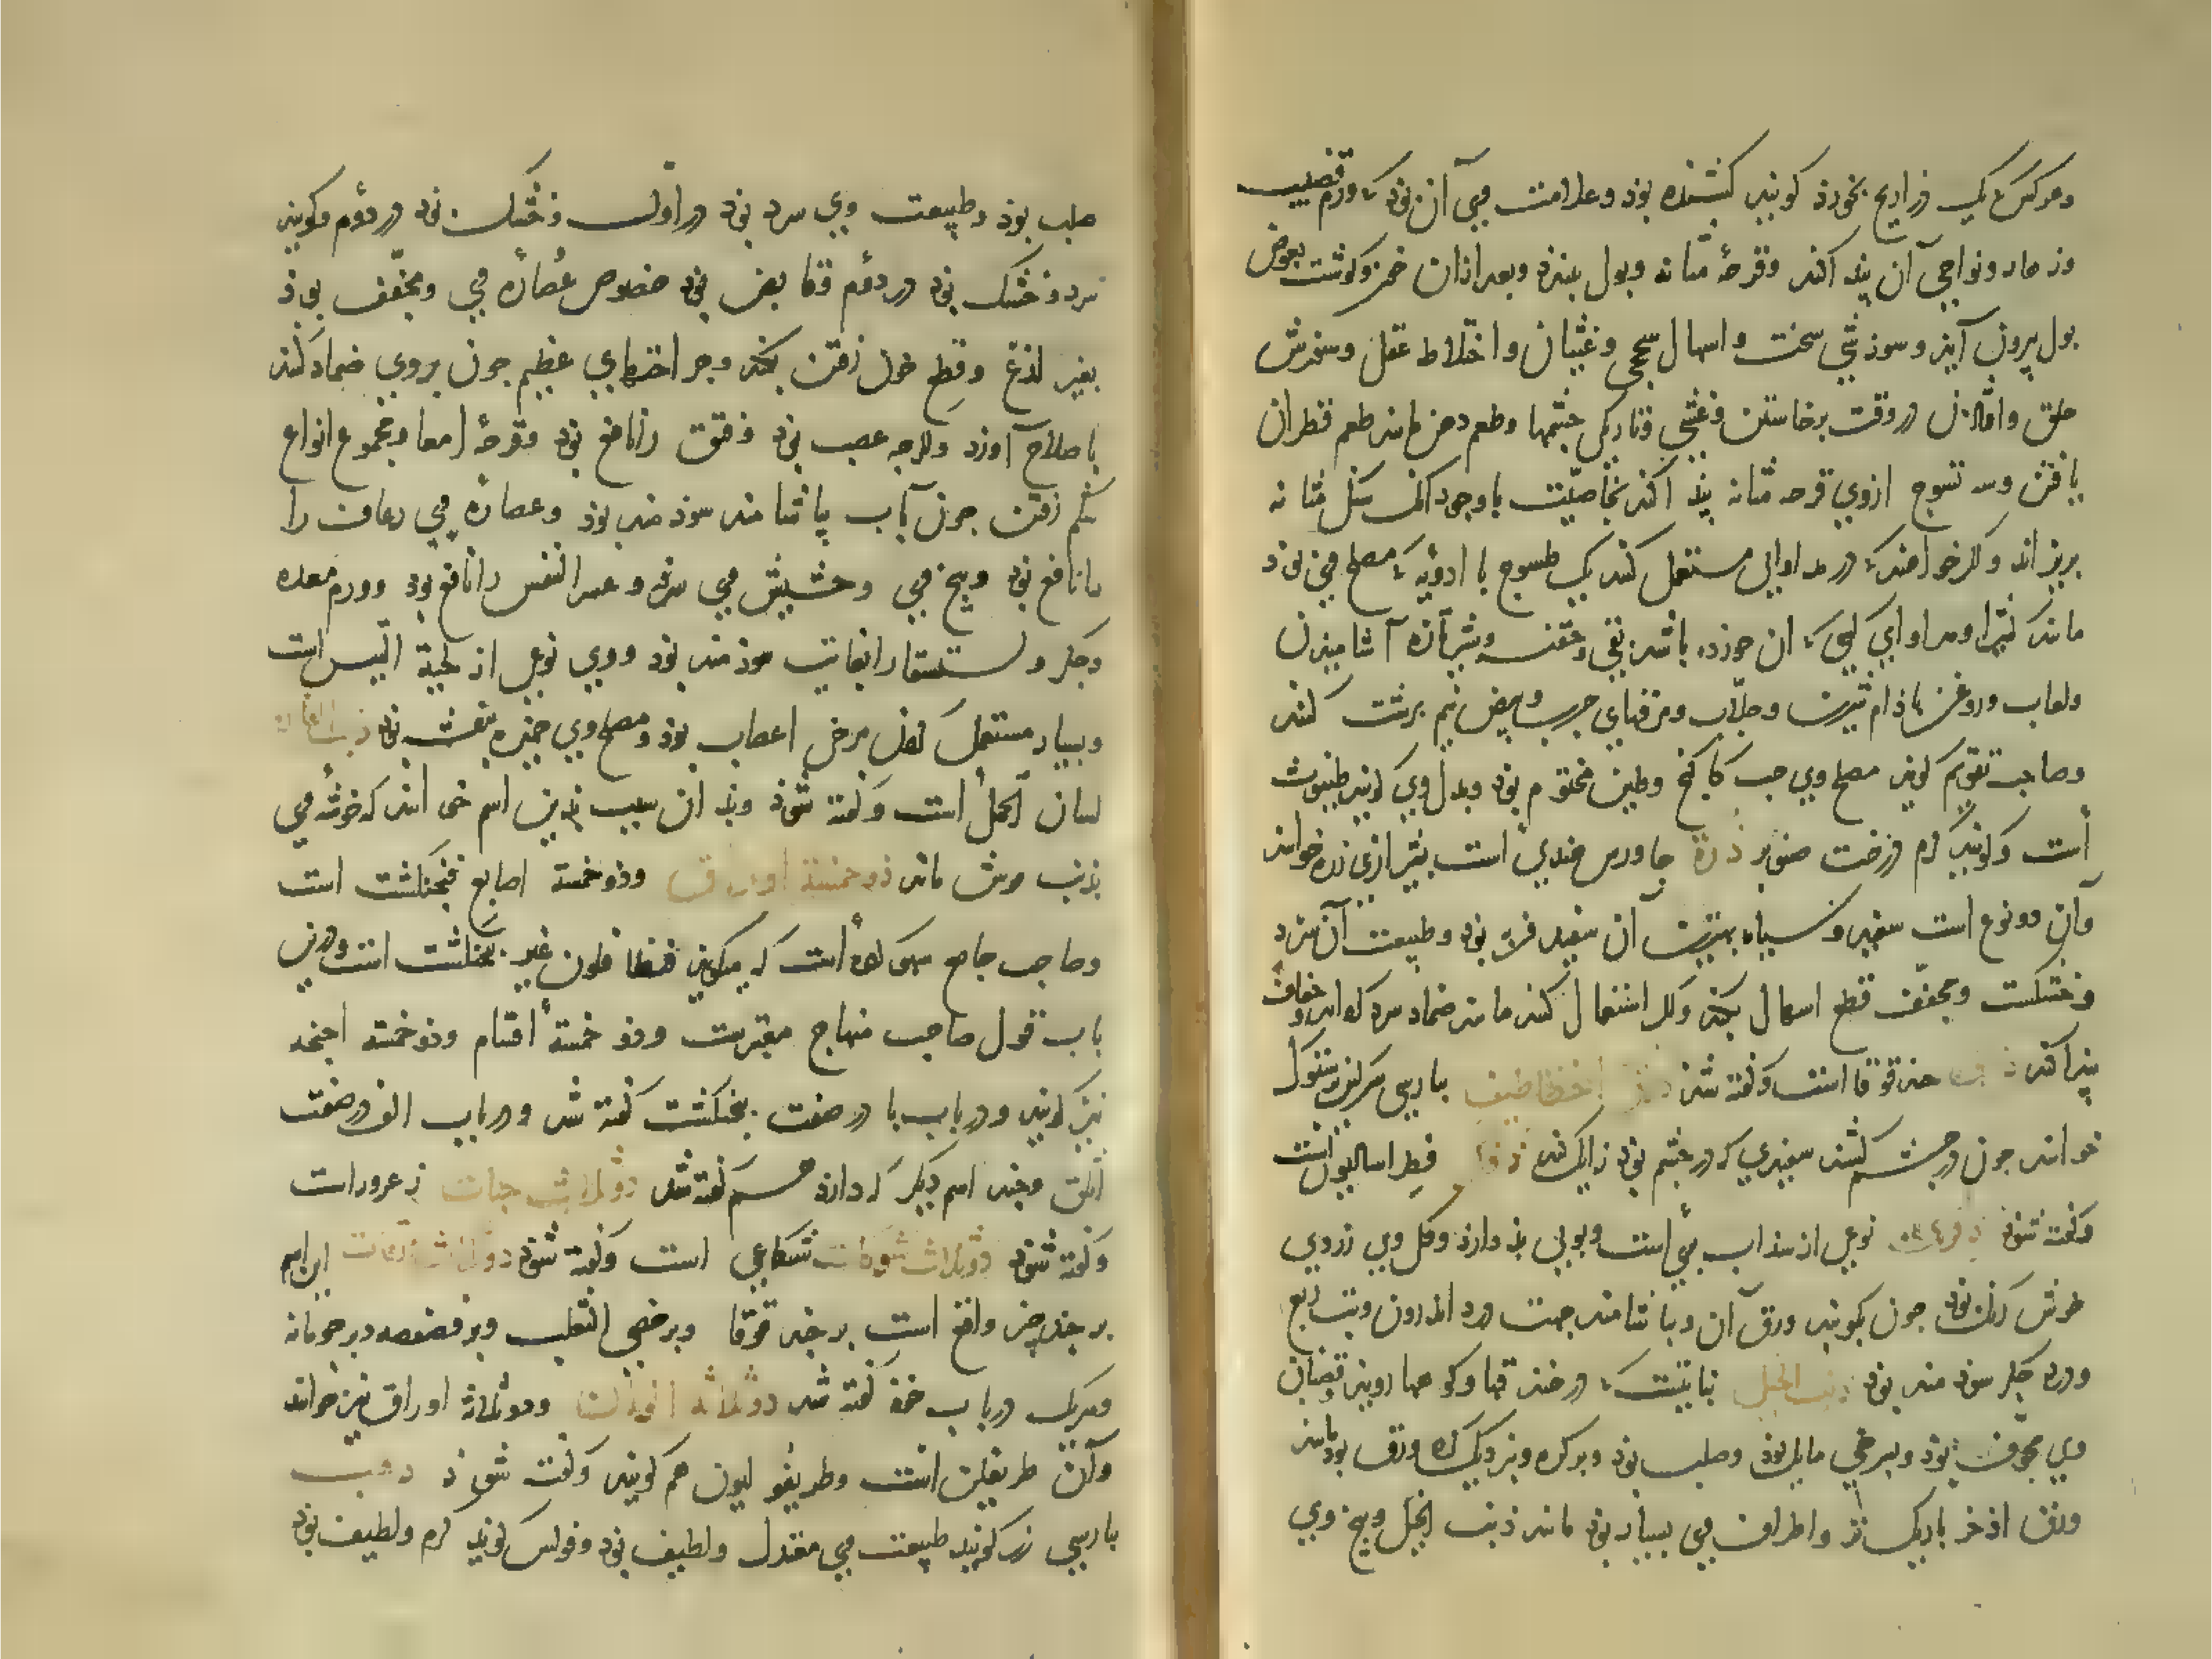 و هرکس که یک ذراریح بخورد کویند کشنده بوذ و علامت وی آن بوذ که ورم قضیب
و زهار و نواحی آن پیدا کند و قرحهٔ مثانه و بول ببندد و بعد ازان خون و کوشت بعوض
بول بیرون آید و سوزشی سخت و اسهال سحجی و غثیان و اختلاط عقل و سوزش
حلق و افتاذن در وقت برخاستن و غشی و تاریکی چشمها و طعم دهن مانند طعم قطران
یافتن و سه تسوج ازوی قرحه مثانه پیدا کند بخاصیّت با وجود آنک سنک مثانه
بریزاند و اکر خواهند که در مداوای مستعمل کنند یک طسوج با ادویهٔ که مصلح وی بوذ
مانند کثیرا و مداوای کسی که ان خورده باشد بقی و حقنه و شیر تازه آشامیذن
و لعاب و روغن باذام شیرین و جلاب و مرقهای چرب و بیض نیم برشت کنند
و صاحب تقویم کوید مصلح وی حب کاکنج و طین مختوم بوذ و بدل وی کویند طنبوث
است و کویند کرم درخت صنوبر ذرة جاورس هندی است بشیرازی ذره خوانند
و آن دو نوع است سفید و سیاه بهترین آن سفید فربه بوذ و طبیعت آن سرد
و خشکست و مجفّف قطع اسهال بکند و اکر استعمال کنند مانند ضماد سرد کرداند و جفاف
پیدا کند حندقوقا است و کفته شذ اخطاطیف بپارسی سرکین پرستوک
خوانند چون در چشم کشند سفیدی که در چشم بوذ زایل کند فطراسالیون است
و کفته شوذ نوعی از سذاب بری است و بویی بذ دارذ و کل وی زردی
خوش رنک بوذ چون بکوبند ورق آن و بیاشامند جهت درد اندرون و تب ربع
و درد جکر سوذ مند بوذ ذنب الخیل نباتیست که در خندقها و کوهها رویذ و قضبان
وی مجوّف بوذ و بسرخی مایل بوذ و صلب بوذ و بر کره و نزدیک کره ورق بوذ مانند
ورق اذخر باریک تر و اطراف وی بسیار بوذ مانند ذنب الخیل و بیخ وی
صلب بوذ و طبیعت وی سرد بوذ در اول و خشک بوذ در دوم و کویند
سرد و خشک بوذ در دوم و قابض بوذ خصوص عصارهٔ وی و مجفّف بوذ
بغیر لذع و قطع خون رفتن بکند و جراحتهای عظیم چون بروی ضماد کنند
باصلاح آورد و اکرچه عصب بوذ و فتق را نافع بوذ و قرحهٔ امعا و مجموع انواع
شکم رفتن چون آب بیاشامند سوذ مند بوذ و عصارهٔ وی رعاف را
نافع بوذ و بیخ وی و حشیش وی سرفه و عسر النفس را نافع بوذ و ورم معده
و جکر و استسقا را بغایت سوذ مند بوذ و وی نوعی از لحیة التیس است
و بسیار مستعمل کردن مرخی اعصاب بوذ و مصلح وی خمیره بنفشه بوذ ذنب الفار
لسان الحمل است و کفته شوذ و بذ ان سبب بذین اسم خوانند که خوشهٔ وی
بذنب موش ماند ذو خمسة اوراق و ذو خمسة اصابع فنجنکشت است
و صاحب جامع سهو کرده است که میکوید فنطافلون غیر بنجنکشت است و درین
باب قول صاحب منهاج معتبرست و ذو خمسة اقسام و ذو خمسة اجنحه
نیز کویند و در باب با در صفت بنجنکشت کفته شذ و در باب الف در صفت
اثلق و چند اسم دیکر که دارد هم کفته شذ ذو ثلاث حبات زعرور است
و کفته شوذ ذو ثلاث شوکات شکاعی است و کفته شوذ ذو ثلاث ورقات این اسم
بر چند چیز واقع است بر حندقوقا و بر خصی الثعلب و بر فصفصه و بر حومانه
و هریک در باب خود کفته شذ ذو ثلاثة الوان و ذو ثلاثة اوراق نیز خوانند
و آن طریفلن است و طریفولیون هم کویند و کفته شوذ ذهب
بپارسی زر کویند طبیعت وی معتدل و لطیف بوذ و فولس کوید کرم و لطیف بوذ